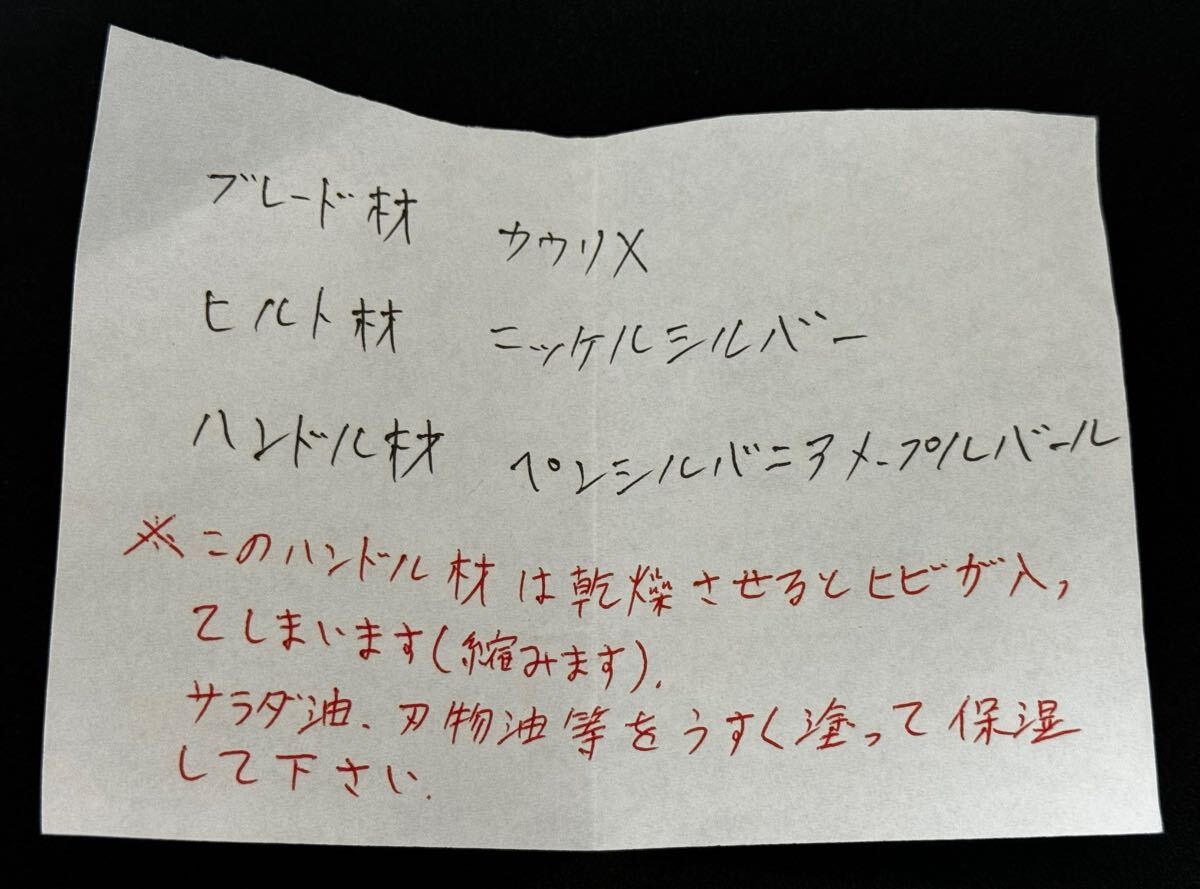 ブレード材 カウリX
ヒルト材 ニッケルシルバー
ハンドル材 ペンシルバニアメープルバール
※このハンドル材は乾燥させるとヒビが入っ
てしまいます(縮みます).
サラダ油、刃物油等をうすく塗って保湿
して下さい.